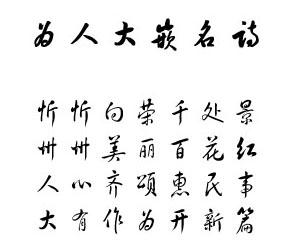 为人大嵌名诗
忻忻向荣千处景
州州美丽百花红
人心齐颂惠民事
大有作为开新篇